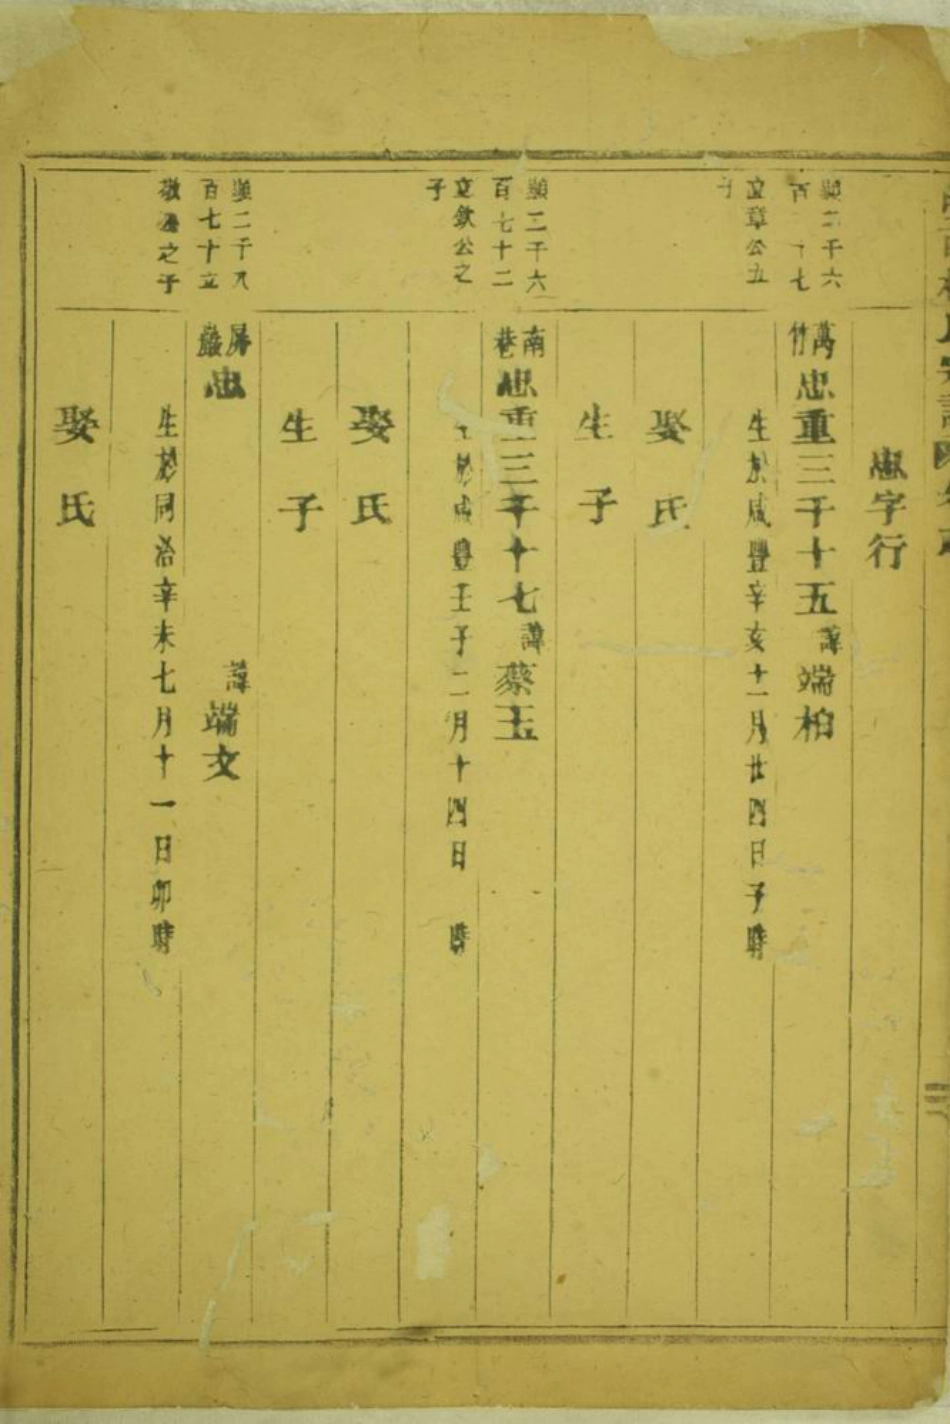 忠字行
顯二千六
百十七
立章公五
子
萬竹
忠重三千十五諱端柏
生於咸豐辛亥十一月廿四日子時
娶氏
生子
顯二千六
百七十二
立欽公之
子
南巷
忠重三千十七諱蔡玉
於咸豐壬子二月十四日 時
娶氏
生子
顯二千八
百七十立
敬之子
屏巖
忠 諱端文
生於同治辛未七月十一日卯時
娶氏